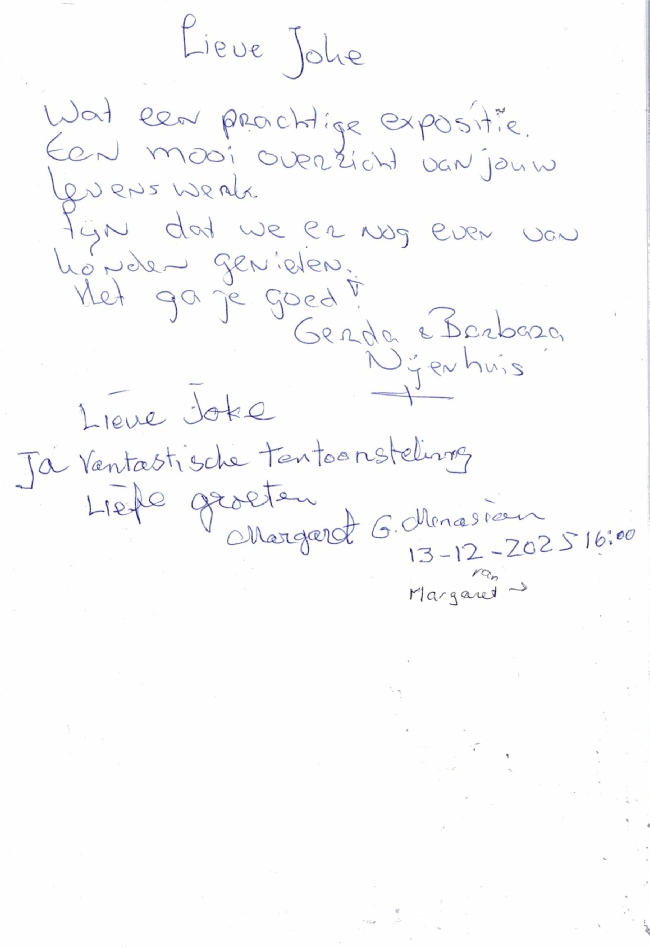 Lieve Joke
Wat een prachtige expositie.
Een mooi overzicht van jouw
levenswerk.
Fijn dat we er nog even van
konden genieten.
Het ga je goed!
Gerda & Barbara
Nijenhuis
Lieve Joke
Ja Vantastische tentoonsteling
Liefe groeten
Margaret G. Menasian
13-12-2025 16:00
van
Margaret →